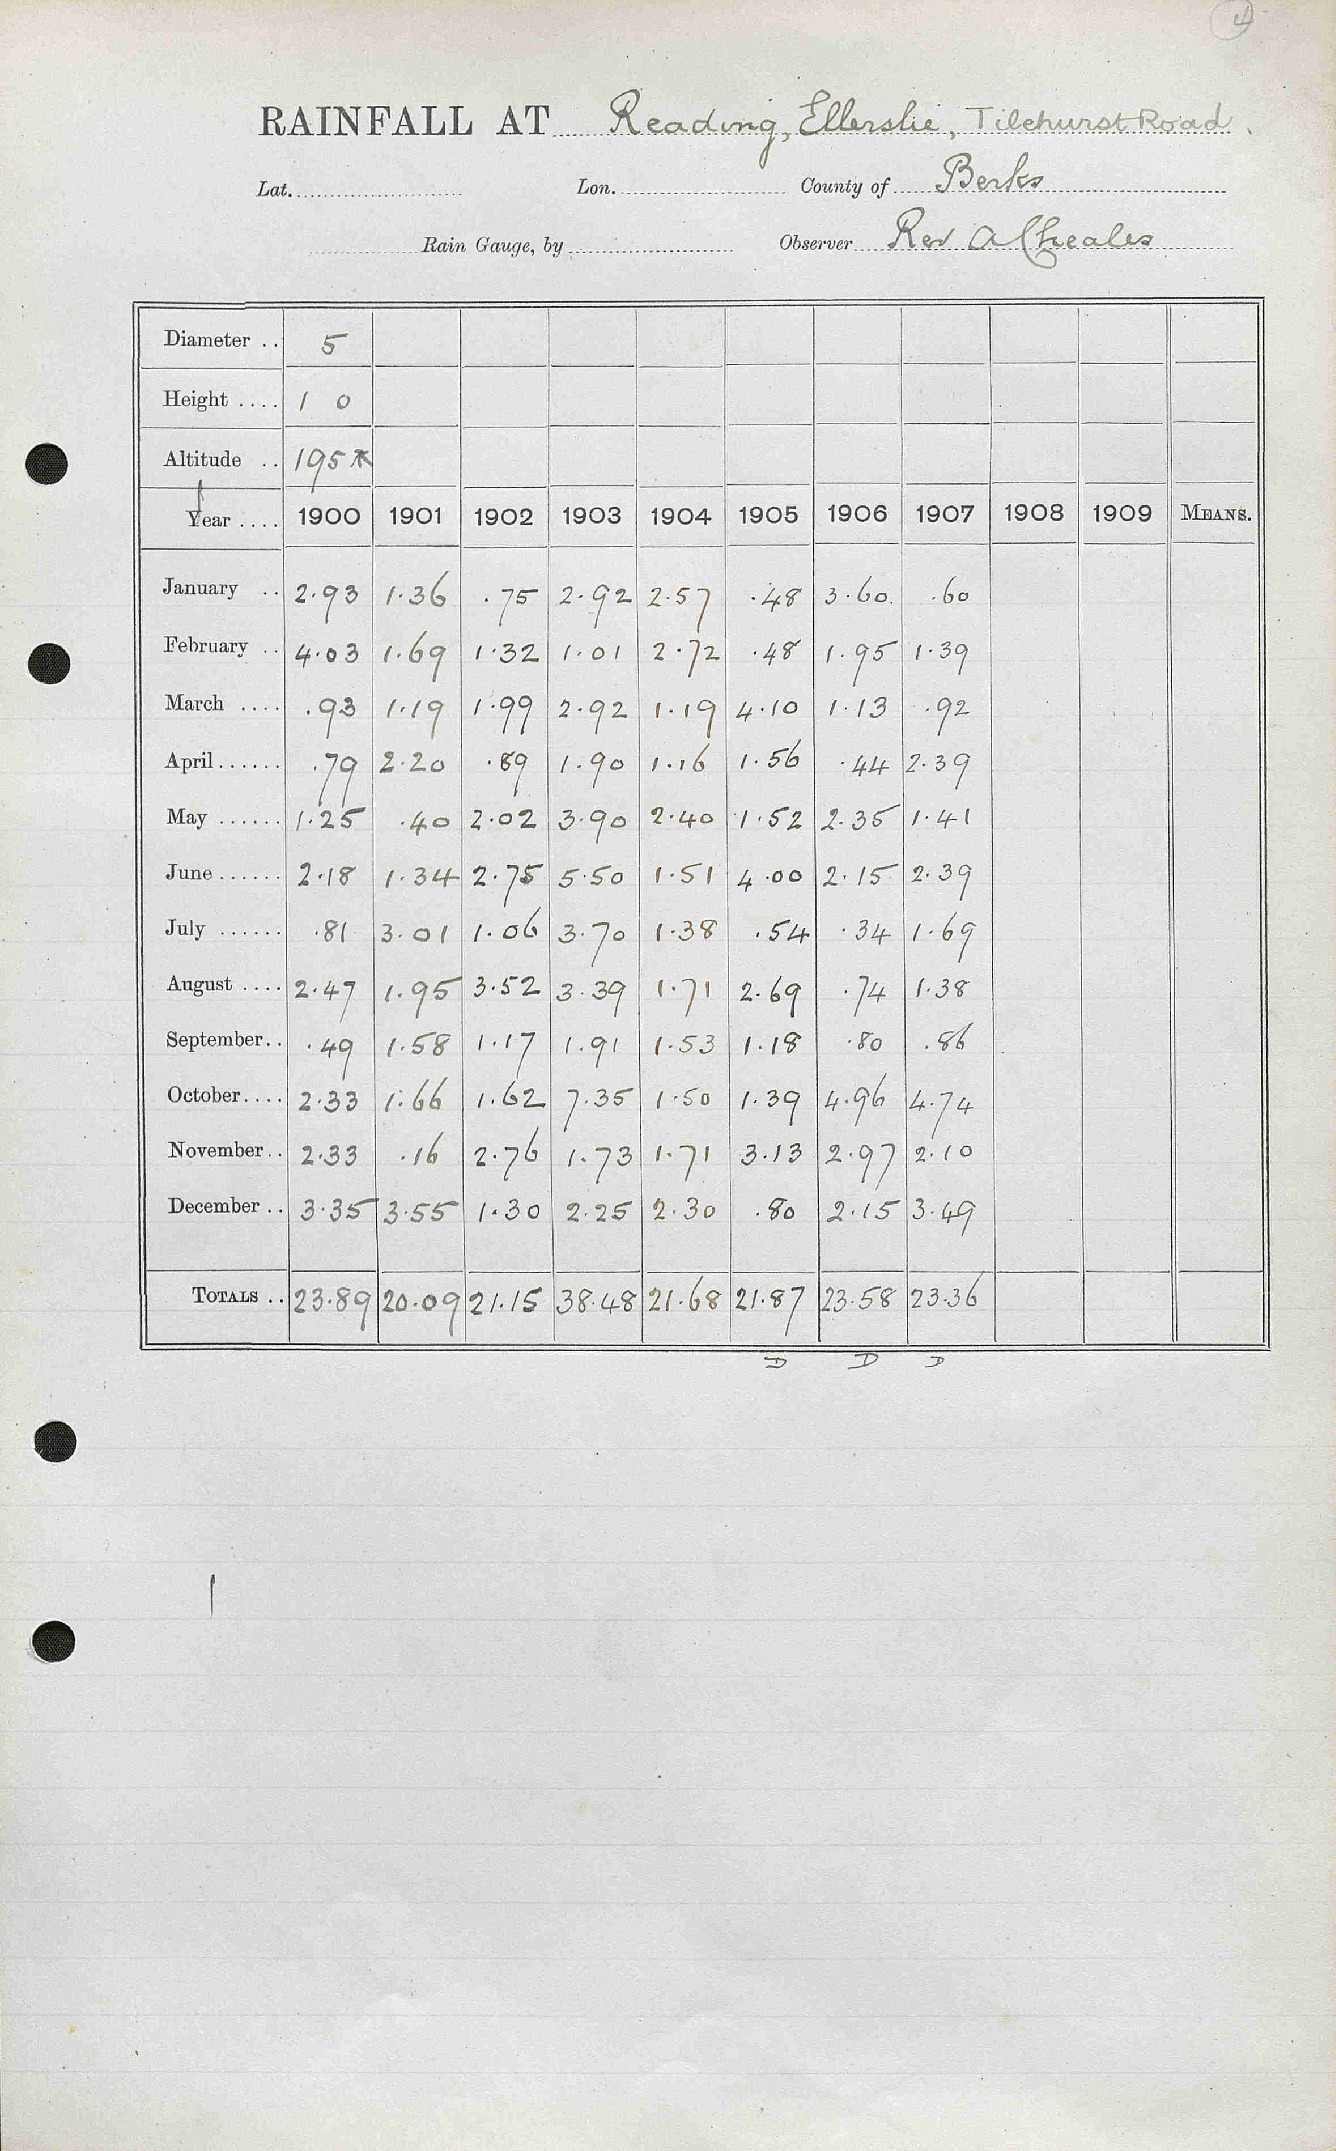 4
RAINFALL AT Reading, Ellerslie, Tilehurst Road.
Lat. Lon. County of Berks
Rain Gauge, by Observer Rev A Cheales
Diameter .. 5
Height .... 1 0
Altitude .. 195
Year .... 1900 1901 1902 1903 1904 1905 1906 1907 1908 1909 MEANS.
January .. 2.93 1.36 .75 2.92 2.57 .48 3.60 .60
February .. 4.03 1.69 1.32 1.01 2.72 .48 1.95 1.39
March .... .93 1.19 1.99 2.92 1.19 4.10 1.13 .92
April ...... .79 2.20 .89 1.90 1.16 1.56 .44 2.39
May ...... 1.25 .40 2.02 3.90 2.40 1.52 2.35 1.41
June ...... 2.18 1.34 2.75 5.50 1.51 4.00 2.15 2.39
July ...... .81 3.01 1.06 3.70 1.38 .54 .34 1.69
August .... 2.47 1.95 3.52 3.39 1.71 2.69 .74 1.38
September .. .49 1.58 1.17 1.91 1.53 1.18 .80 .86
October .... 2.33 1.66 1.62 7.35 1.50 1.39 4.96 4.74
November .. 2.33 .16 2.76 1.73 1.71 3.13 2.97 2.10
December .. 3.35 3.55 1.30 2.25 2.30 .80 2.15 3.49
TOTALS .. 23.89 20.09 21.15 38.48 21.68 21.87 23.58 23.36
D D D